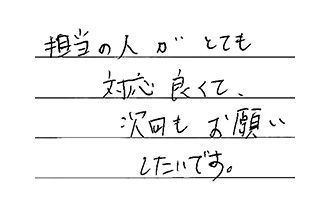 担当の人がとても
対応良くて、
次回もお願い
したいです。